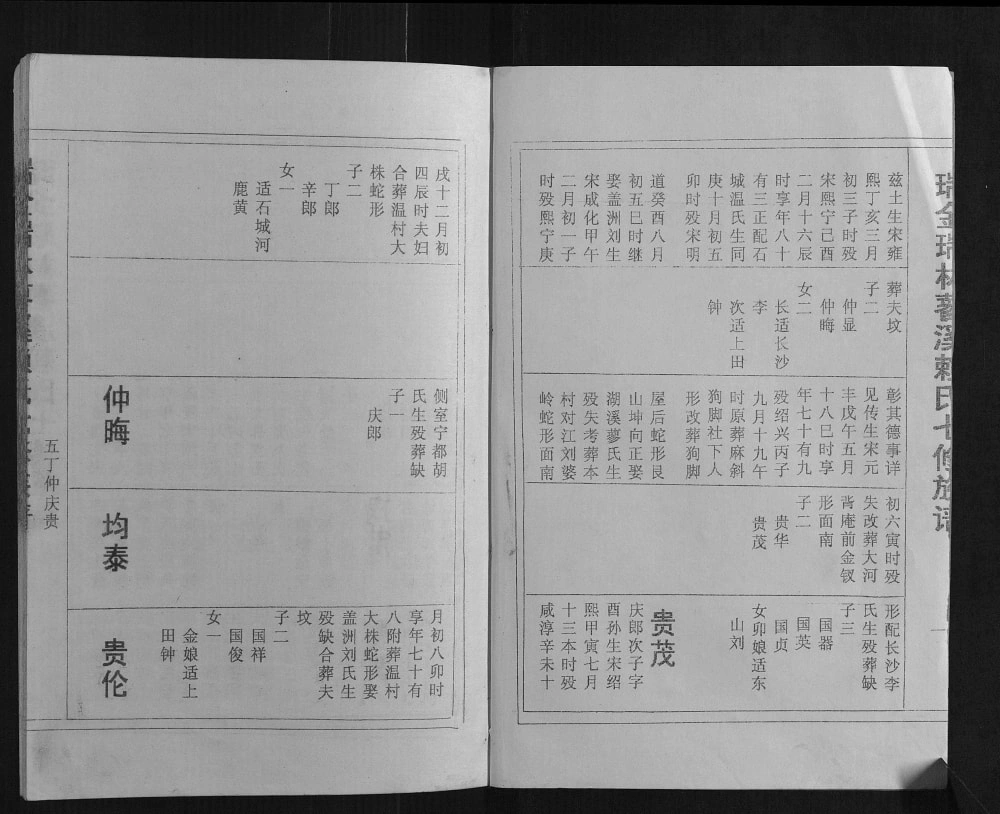 瑞金瑞林溪赖氏七修族谱
兹土生宋雍
熙丁亥三月
初三子时殁
宋熙宁己酉
二月十六辰
时享年八十
有三正配石
城温氏生同
庚十月初五
卯时殁宋明
道癸酉八月
初五巳时继
娶盖洲刘生
宋咸化甲午
二月初一子
时殁熙宁庚
葬夫坟
子二
仲显
仲晦
女二
长适长沙
李
次适上田
钟
彰其德事详
见传生宋元
丰戊午五月
十八巳时享
年七十有九
殁绍兴丙子
九月十九午
时原葬麻斜
狗脚社下人
形改葬狗脚
屋后蛇形艮
山坤向正娶
湖溪蓼氏生
殁失考葬本
村对江刘婆
岭蛇形面南
初六寅时殁
失改葬大河
背庵前金钗
形面南
子二
贵华
贵茂
形配长沙李
氏生殁葬缺
子三
国器
国英
国贞
女卯娘适东
山刘
贵茂
庆郎次子字
酉孙生宋绍
熙甲寅七月
十三本时殁
咸淳辛未十
戌十二月初
四辰时夫妇
合葬温村大
株蛇形
子二
丁郎
辛郎
女一
适石城河
鹿黄
侧室宁都胡
氏生殁葬缺
子一
庆郎
仲晦
均泰
月初八卯时
享年七十有
八附葬温村
大株蛇形娶
盖洲刘氏生
殁缺合葬夫
坟
子二
国祥
国俊
女一
金娘适上
田钟
贵伦
五丁仲庆贵